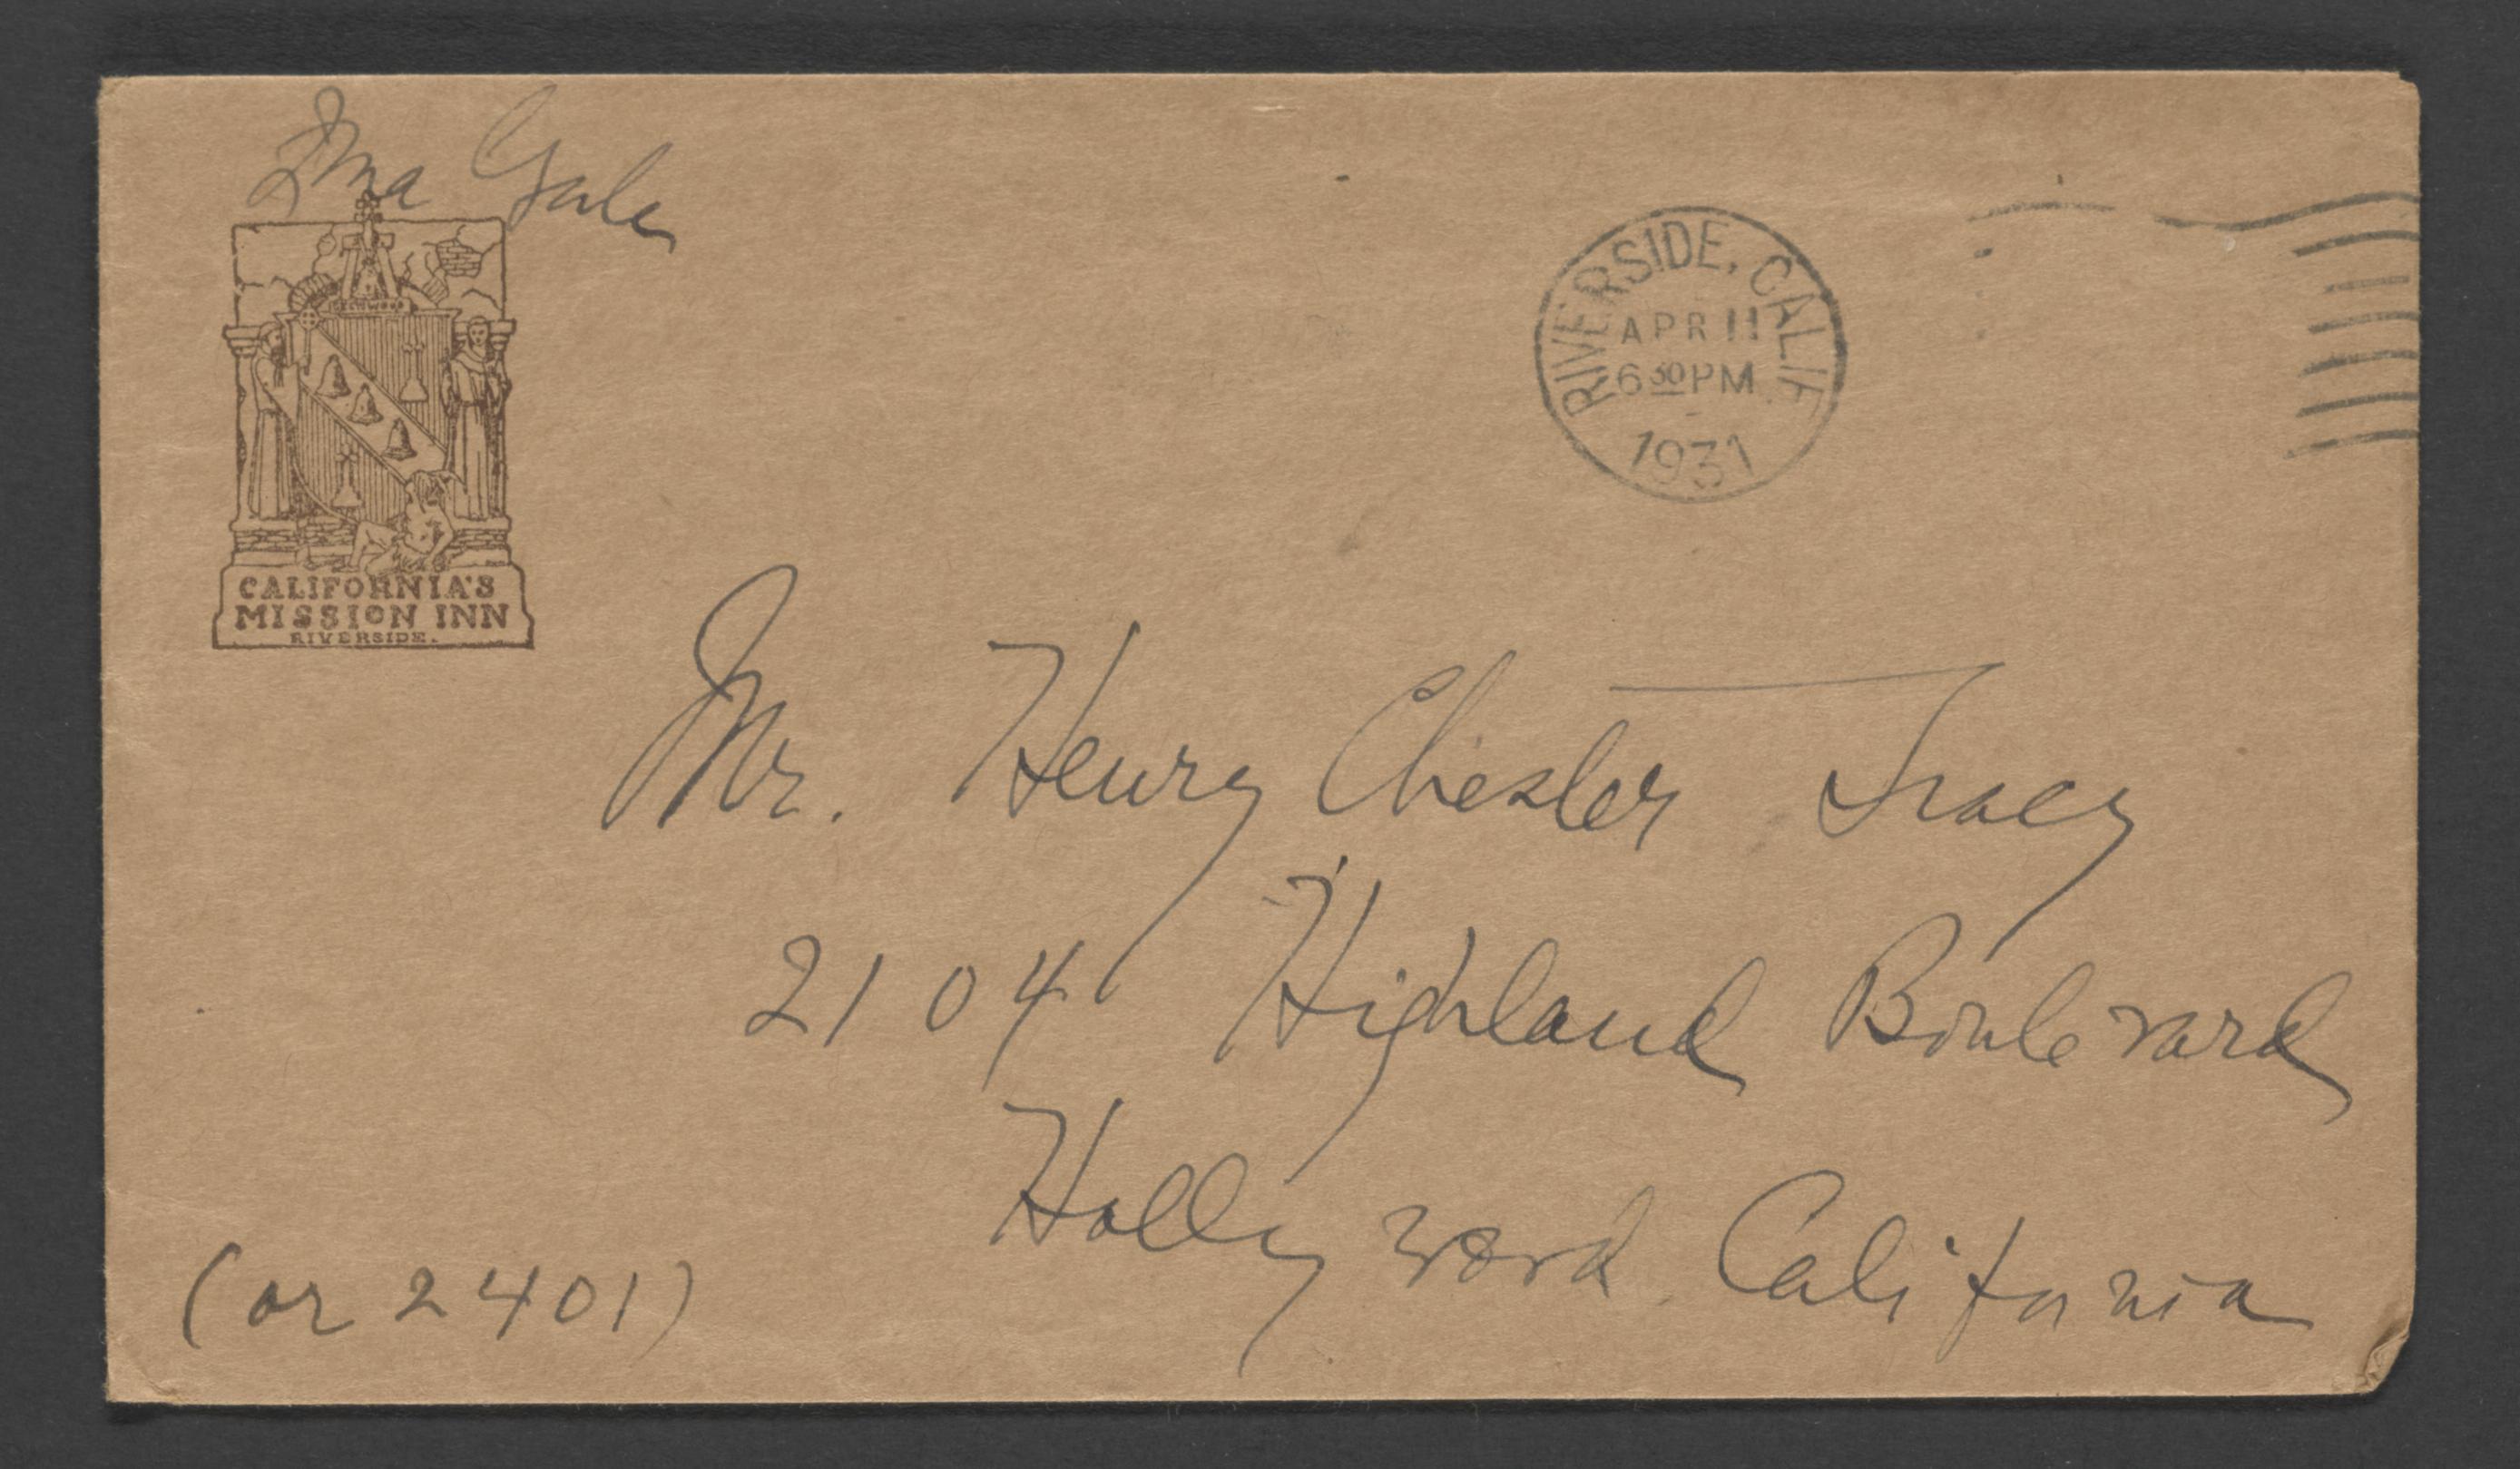 Zona Gale
RIVERSIDE, CALIF.
APR 11
6 30 PM
1931
CALIFORNIA'S
MISSION INN
RIVERSIDE.
Mr. Henry Chester Tracy
2104 Highland Boulevard
Hollywood California
(or 2401)